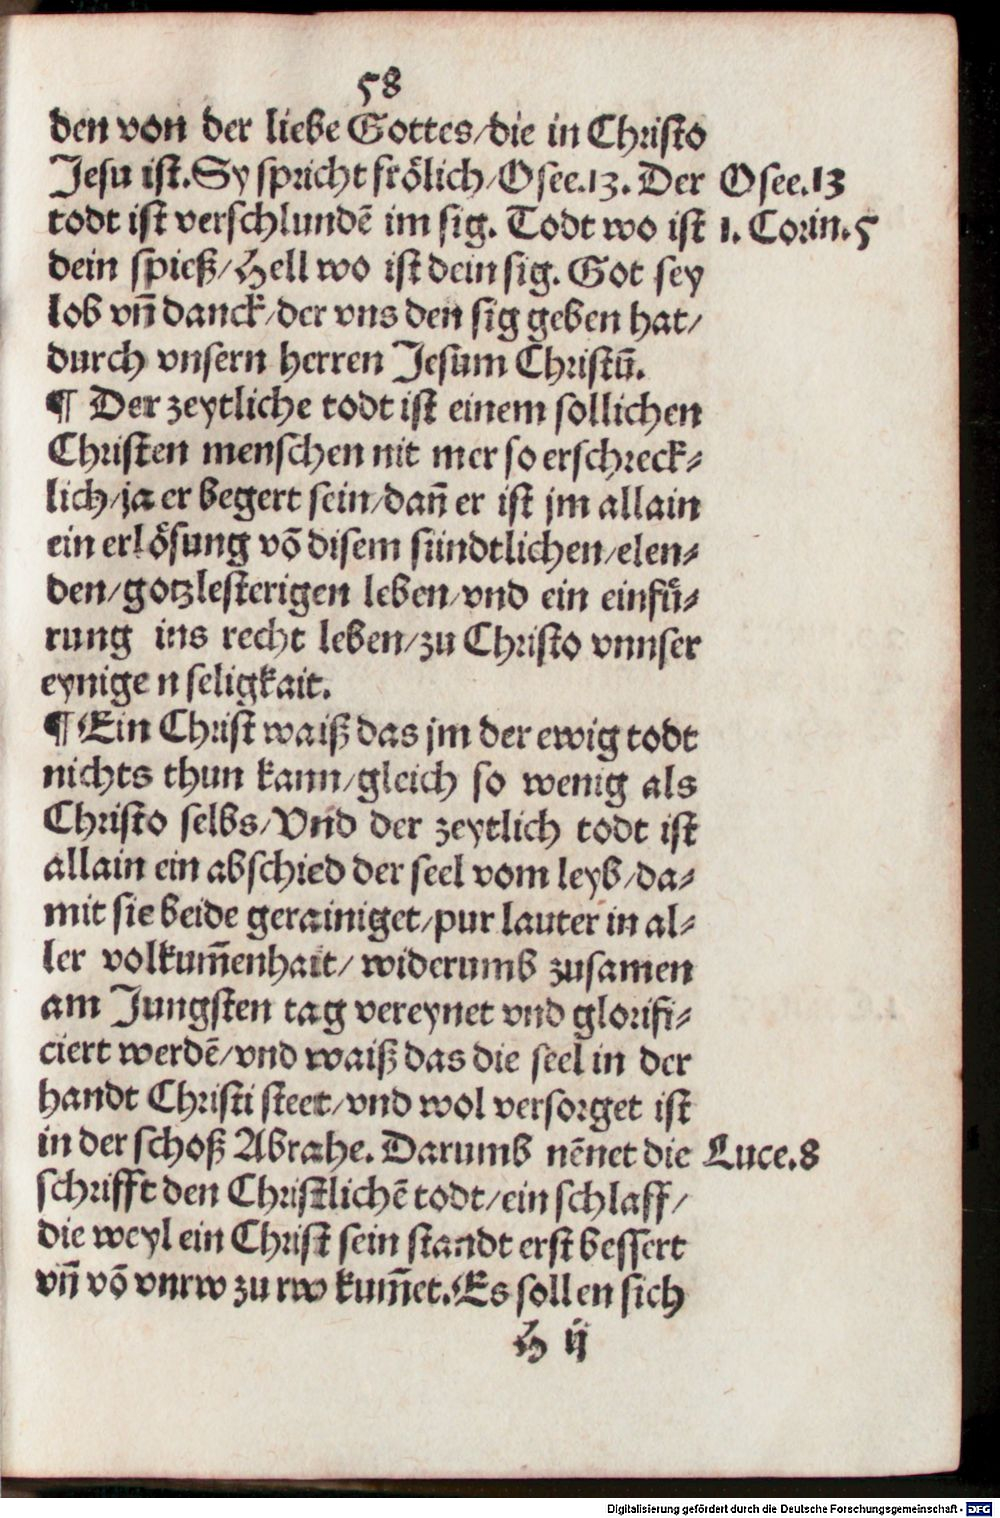 58
den von der liebe Gottes/die in Christo
Jesu ist. Sy spricht frölich/Osee.13. Der Osee.13
todt ist verschlundē im sig. Todt wo ist 1. Corin.5
dein spieß/Hell wo ist dein sig. Got sey
lob vn̄ danck/der vns den sig geben hat/
durch vnsern herren Jesum Christū.
¶ Der zeytliche todt ist einem sollichen
Christen menschen nit mer so erschreck⸗
lich/ja er begert sein/dan̄ er ist jm allain
ein erlösung vō disem sündtlichen/elen⸗
den/gotzlesterigen leben/vnd ein einfü⸗
rung ins recht leben/zu Christo vnnser
eynigen seligkait.
¶ Ein Christ waiß das jm der ewig todt
nichts thun kann/gleich so wenig als
Christo selbs/Vnd der zeytlich todt ist
allain ein abschied der seel vom leyb/da⸗
mit sie beide gerainiget/pur lauter in al⸗
ler volkum̄enhait/widerumb zusamen
am Jungsten tag vereynet vnd glorifi⸗
ciert werdē/vnd waiß das die seel in der
handt Christi steet/vnd wol versorget ist
in der schoß Abrahe. Darumb nēnet die Luce.8
schrifft den Christlichē todt/ein schlaff/
die weyl ein Christ sein standt erst bessert
vn̄ vō vnrw zu rw kum̄et. Es sollen sich
H ij
Digitalisierung gefördert durch die Deutsche Forschungsgemeinschaft - DFG